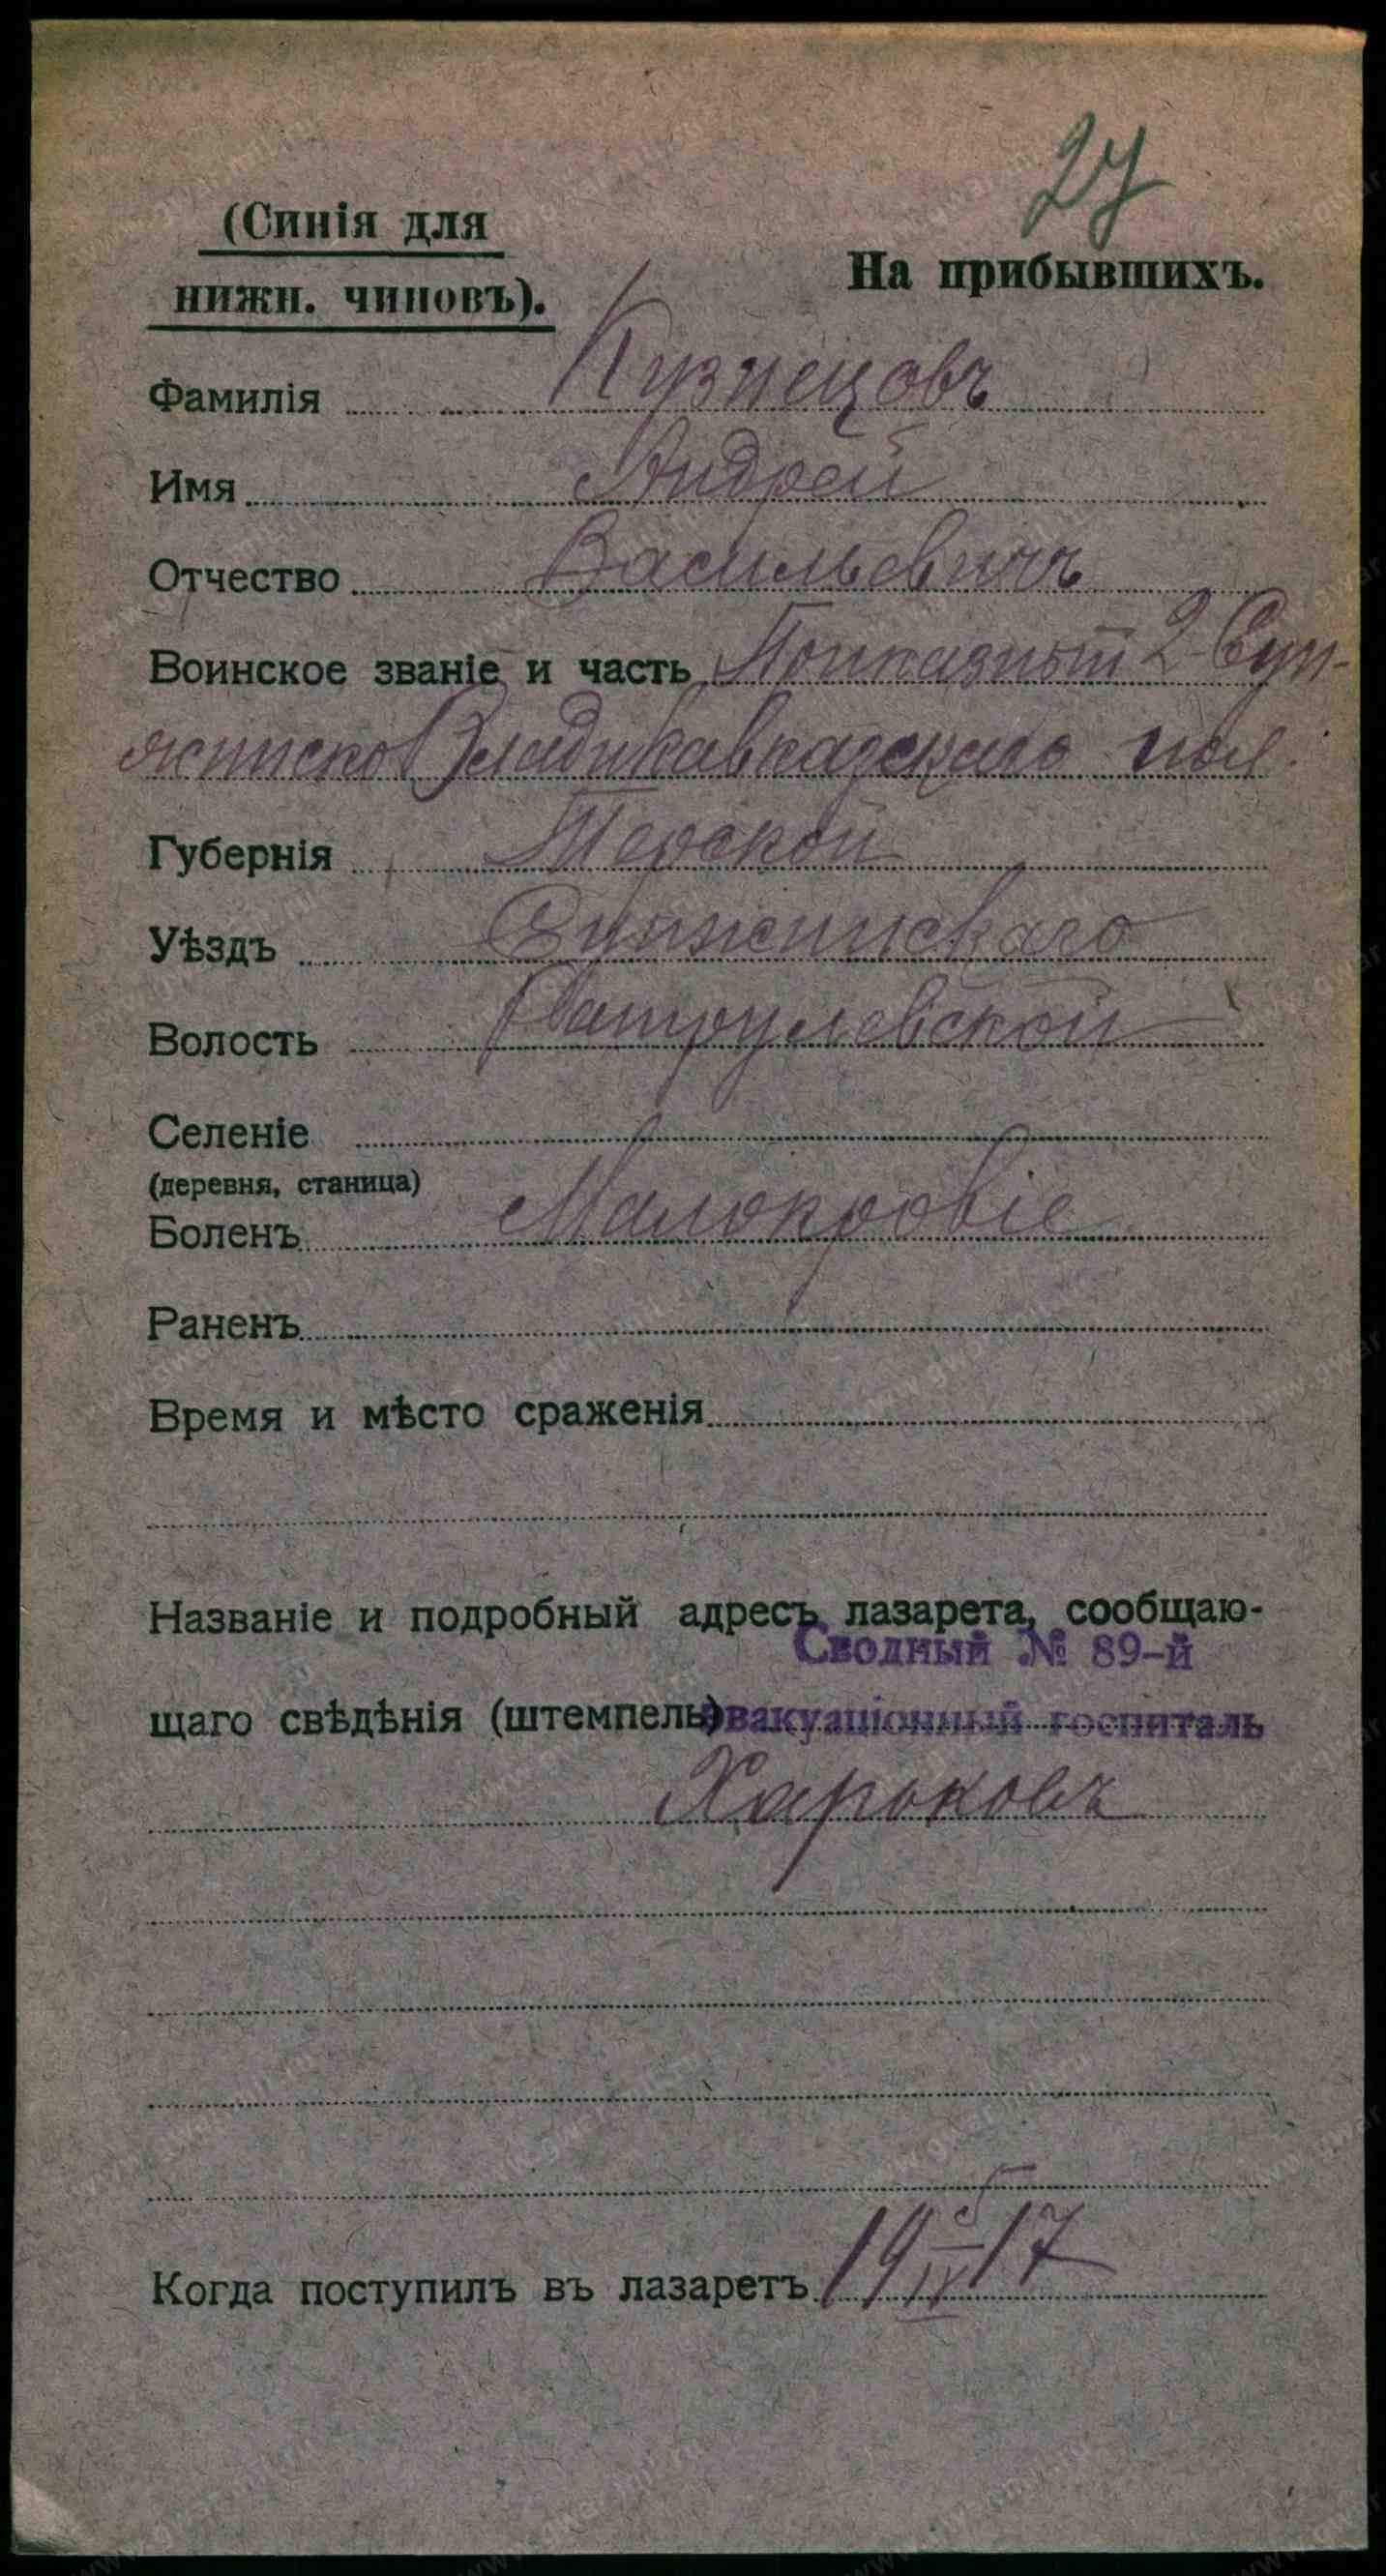 27
(Синія для
нижн. чиновъ).
На прибывшихъ.
Фамилія Кузнецовъ
Имя Андрей
Отчество Васильевичъ
Воинское званіе и часть 2 Сун-
Владикавказскаго пол.
Губернія Терской
Уѣздъ Сунженскаго
Волость
Селеніе
(деревня, станица)
Боленъ Малокровіе
Раненъ
Время и мѣсто сраженія
Названіе и подробный адресъ лазарета, сообщаю-
Сводный № 89-й
щаго свѣдѣнія (штемпель) эвакуаціонный госпиталь
Харьковъ
Когда поступилъ въ лазаретъ 19 5/IV 17